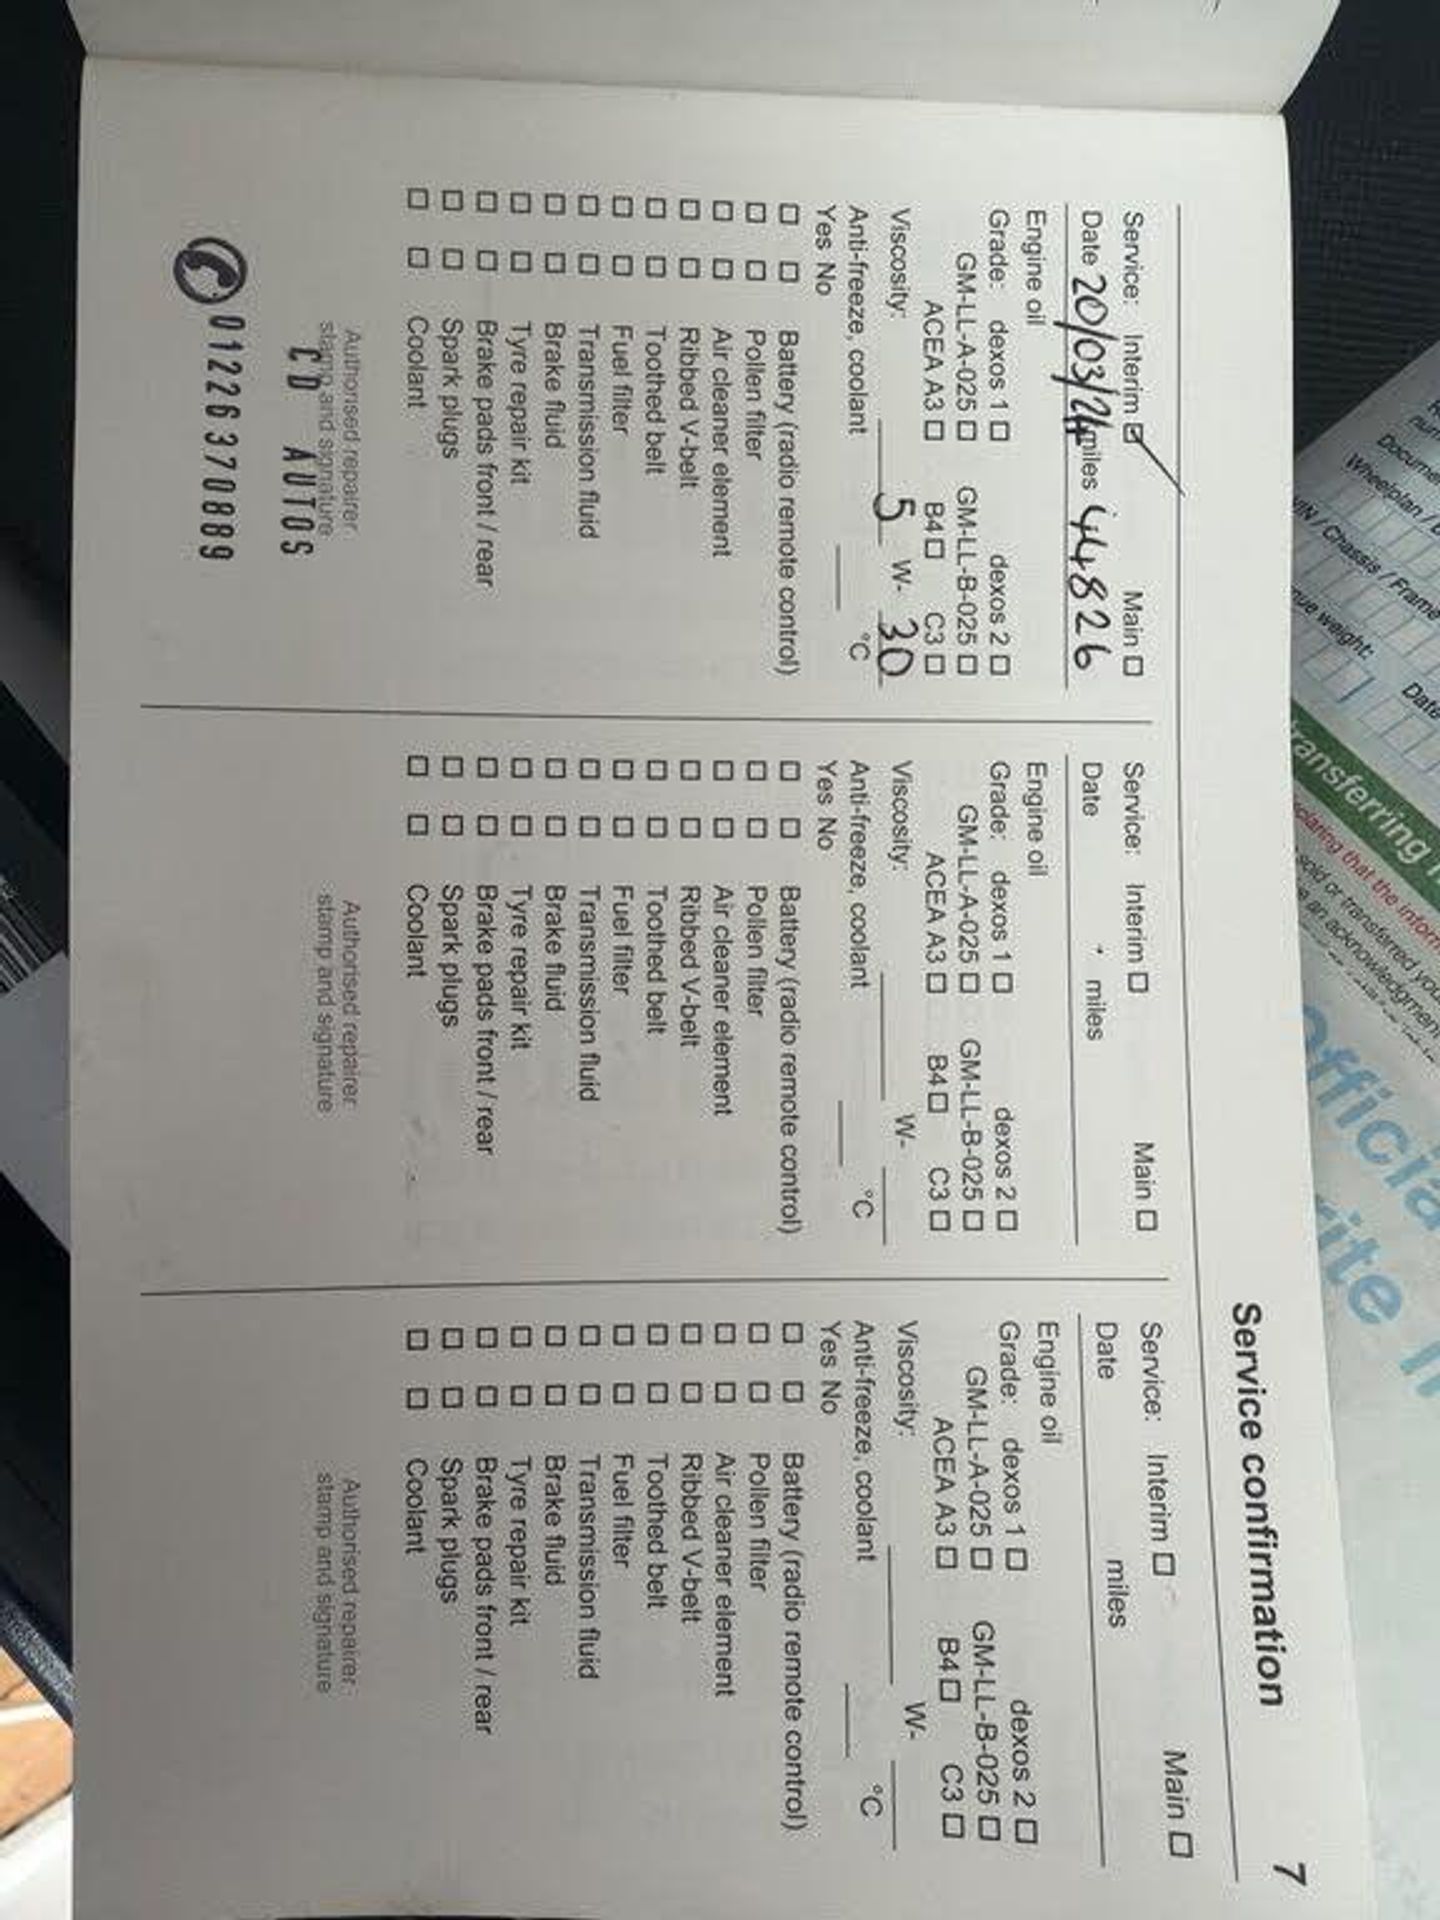 Service confirmation 7
Service: Interim ☑ Main ☐
Date 20/03/24 miles 44826
Engine oil
Grade: dexos 1 ☐ dexos 2 ☐
GM-LL-A-025 ☐ GM-LL-B-025 ☐
ACEA A3 ☐ B4 ☐ C3 ☐
Viscosity: 5 W- 30
Anti-freeze, coolant °C
Yes No
☐ ☐ Battery (radio remote control)
☐ ☐ Pollen filter
☐ ☐ Air cleaner element
☐ ☐ Ribbed V-belt
☐ ☐ Toothed belt
☐ ☐ Fuel filter
☐ ☐ Transmission fluid
☐ ☐ Brake fluid
☐ ☐ Tyre repair kit
☐ ☐ Brake pads front / rear
☐ ☐ Spark plugs
☐ ☐ Coolant
Authorised repairer
stamp and signature
CD AUTOS
01226370889
Service: Interim ☐ Main ☐
Date miles
Engine oil
Grade: dexos 1 ☐ dexos 2 ☐
GM-LL-A-025 ☐ GM-LL-B-025 ☐
ACEA A3 ☐ B4 ☐ C3 ☐
Viscosity: W-
Anti-freeze, coolant °C
Yes No
☐ ☐ Battery (radio remote control)
☐ ☐ Pollen filter
☐ ☐ Air cleaner element
☐ ☐ Ribbed V-belt
☐ ☐ Toothed belt
☐ ☐ Fuel filter
☐ ☐ Transmission fluid
☐ ☐ Brake fluid
☐ ☐ Tyre repair kit
☐ ☐ Brake pads front / rear
☐ ☐ Spark plugs
☐ ☐ Coolant
Authorised repairer
stamp and signature
Service: Interim ☐ Main ☐
Date miles
Engine oil
Grade: dexos 1 ☐ dexos 2 ☐
GM-LL-A-025 ☐ GM-LL-B-025 ☐
ACEA A3 ☐ B4 ☐ C3 ☐
Viscosity: W-
Anti-freeze, coolant °C
Yes No
☐ ☐ Battery (radio remote control)
☐ ☐ Pollen filter
☐ ☐ Air cleaner element
☐ ☐ Ribbed V-belt
☐ ☐ Toothed belt
☐ ☐ Fuel filter
☐ ☐ Transmission fluid
☐ ☐ Brake fluid
☐ ☐ Tyre repair kit
☐ ☐ Brake pads front / rear
☐ ☐ Spark plugs
☐ ☐ Coolant
Authorised repairer
stamp and signature
Wheelplan /
/ Chassis / Frame
weight:
Date
that the
sold or transferred
an acknowledgment